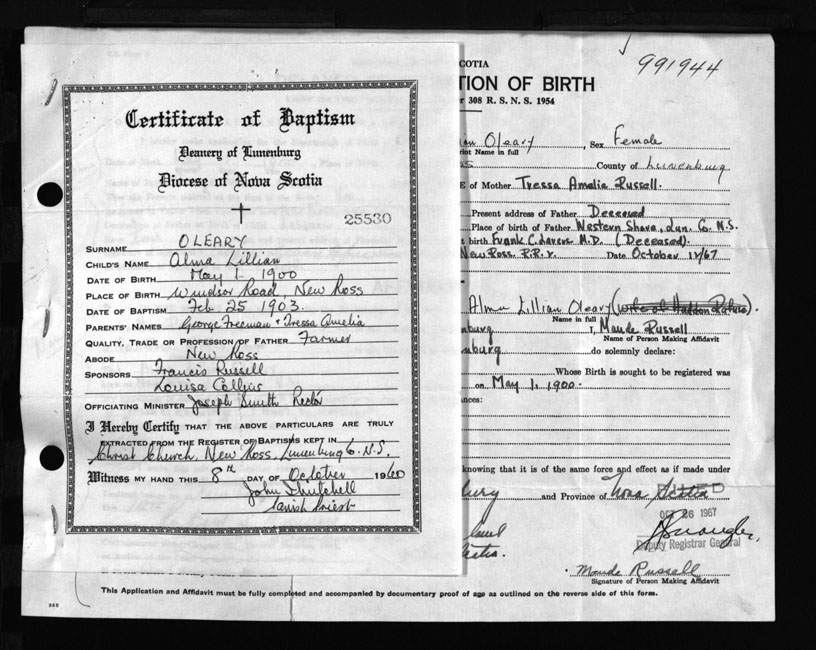 Certificate of Baptism
Deanery of Lunenburg
Diocese of Nova Scotia
25530
SURNAME OLEARY
CHILD'S NAME Alma Lillian
DATE OF BIRTH May 1 1900
PLACE OF BIRTH Windsor Road, New Ross
DATE OF BAPTISM Feb 25 1903
PARENTS' NAMES George Freeman + Tressa Amelia
QUALITY, TRADE OR PROFESSION OF FATHER Farmer
ABODE New Ross
SPONSORS Francis Russell
Louisa
OFFICIATING MINISTER Joseph Smith Rector
I Hereby Certify THAT THE ABOVE PARTICULARS ARE TRULY
EXTRACTED FROM THE REGISTER OF BAPTISMS KEPT IN
Christ Church, New Ross, Lunenburg Co. N.S.
Witness MY HAND THIS 8th DAY OF October 1960
John
Parish Priest
991944
COTIA
TION OF BIRTH
308 R. S. N. S. 1954
ian Oleary, Sex Female
rint Name in full
County of Lunenburg
E of Mother Tressa Amelia Russell.
Present address of Father Deceased
Place of birth of Father Western Shore, Lun. Co. N.S.
t birth Frank C. Lavers M.D. (Deceased).
New Ross. R.R. Date October 12/67
Alma Lillian Oleary (wife of).
Name in full
nburg I, Maude Russell
Name of Person Making Affidavit
nburg do solemnly declare:
Whose Birth is sought to be registered was
on May 1, 1900.
nces:
knowing that it is of the same force and effect as if made under
burg and Province of Nova Scotia
FILED
OCT 26 1967
Deputy Registrar General
Maude Russell
Signature of Person Making Affidavit
This Application and Affidavit must be fully completed and accompanied by documentary proof of age as outlined on the reverse side of this form.